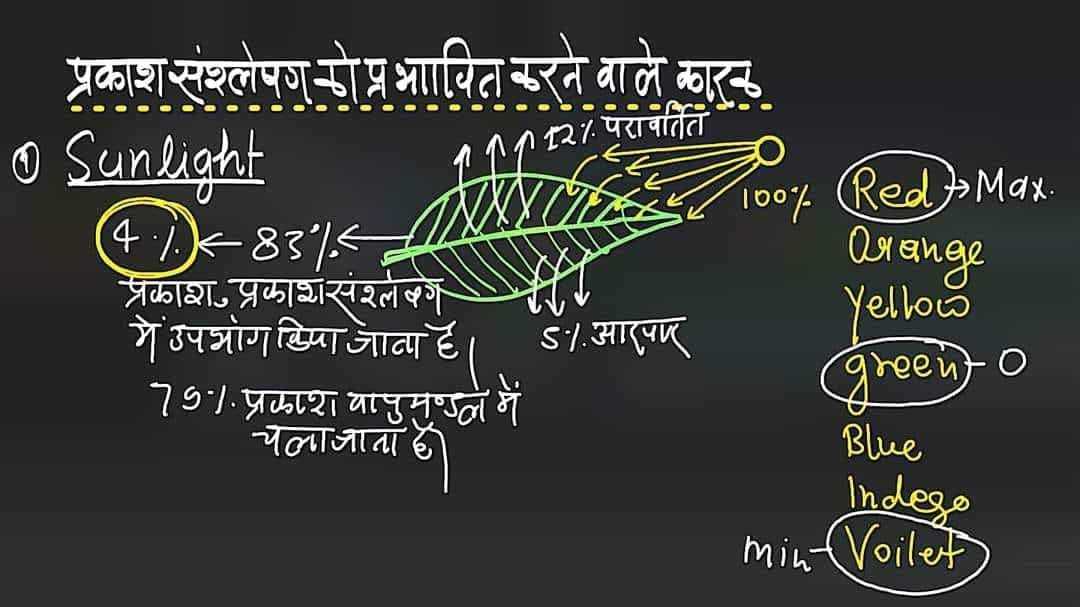 प्रकाश संश्लेषण को प्रभावित करने वाले कारक
① Sunlight
12% परावर्तित
100%
4% ← 83% ←
प्रकाश, प्रकाश संश्लेषण
में उपभोग किया जाता है।
5% आरपार
79% प्रकाश वायुमण्डल में
चला जाता है।
Red → Max.
Orange
Yellow
green - 0
Blue
Indego
min - Voilet